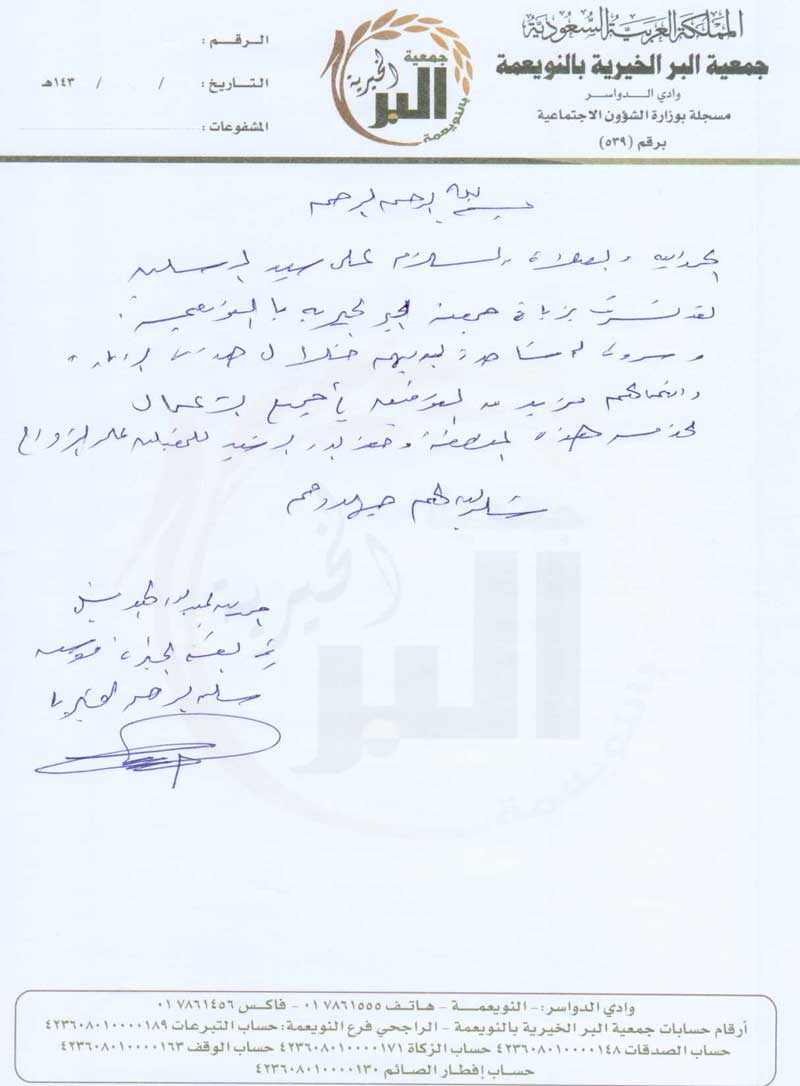 المملكة العربية السعودية
جمعية البر الخيرية بالنويعمة
وادي الدواسر
مسجلة بوزارة الشؤون الاجتماعية
برقم (٥٣٩)
جمعية
البر
الخيرية
بالنويعمة
الرقم :
التاريخ : / / ١٤٣هـ
المشفوعات :
بسم الله الرحمن الرحيم
الحمد لله والصلاة والسلام على سيد المرسلين
لقد تشرفت بزيارة جمعية البر الخيرية بالنويعمة
وسرني ما شاهدت لديهم خلال هذه الزيارة
واتمنى لهم مزيد من التوفيق في جميع الأعمال
لخدمة هذه المنطقة للمقبلين على الزواج
شكر الله لهم جهودهم
وادي الدواسر:- النويعمة - هاتف ٠١٧٨٦١٥٥٥ - فاكس ٠١٧٨٦١٤٥٦
أرقام حسابات جمعية البر الخيرية بالنويعمة - الراجحي فرع النويعمة: حساب التبرعات ٤٢٣٦٠٨٠١٠٠٠٠١٨٩
حساب الصدقات ٤٢٣٦٠٨٠١٠٠٠٠١٤٨ حساب الزكاة ٤٢٣٦٠٨٠١٠٠٠٠١٧١ حساب الوقف ٤٢٣٦٠٨٠١٠٠٠٠١٦٣
حساب إفطار الصائم ٤٢٣٦٠٨٠١٠٠٠٠١٣٠